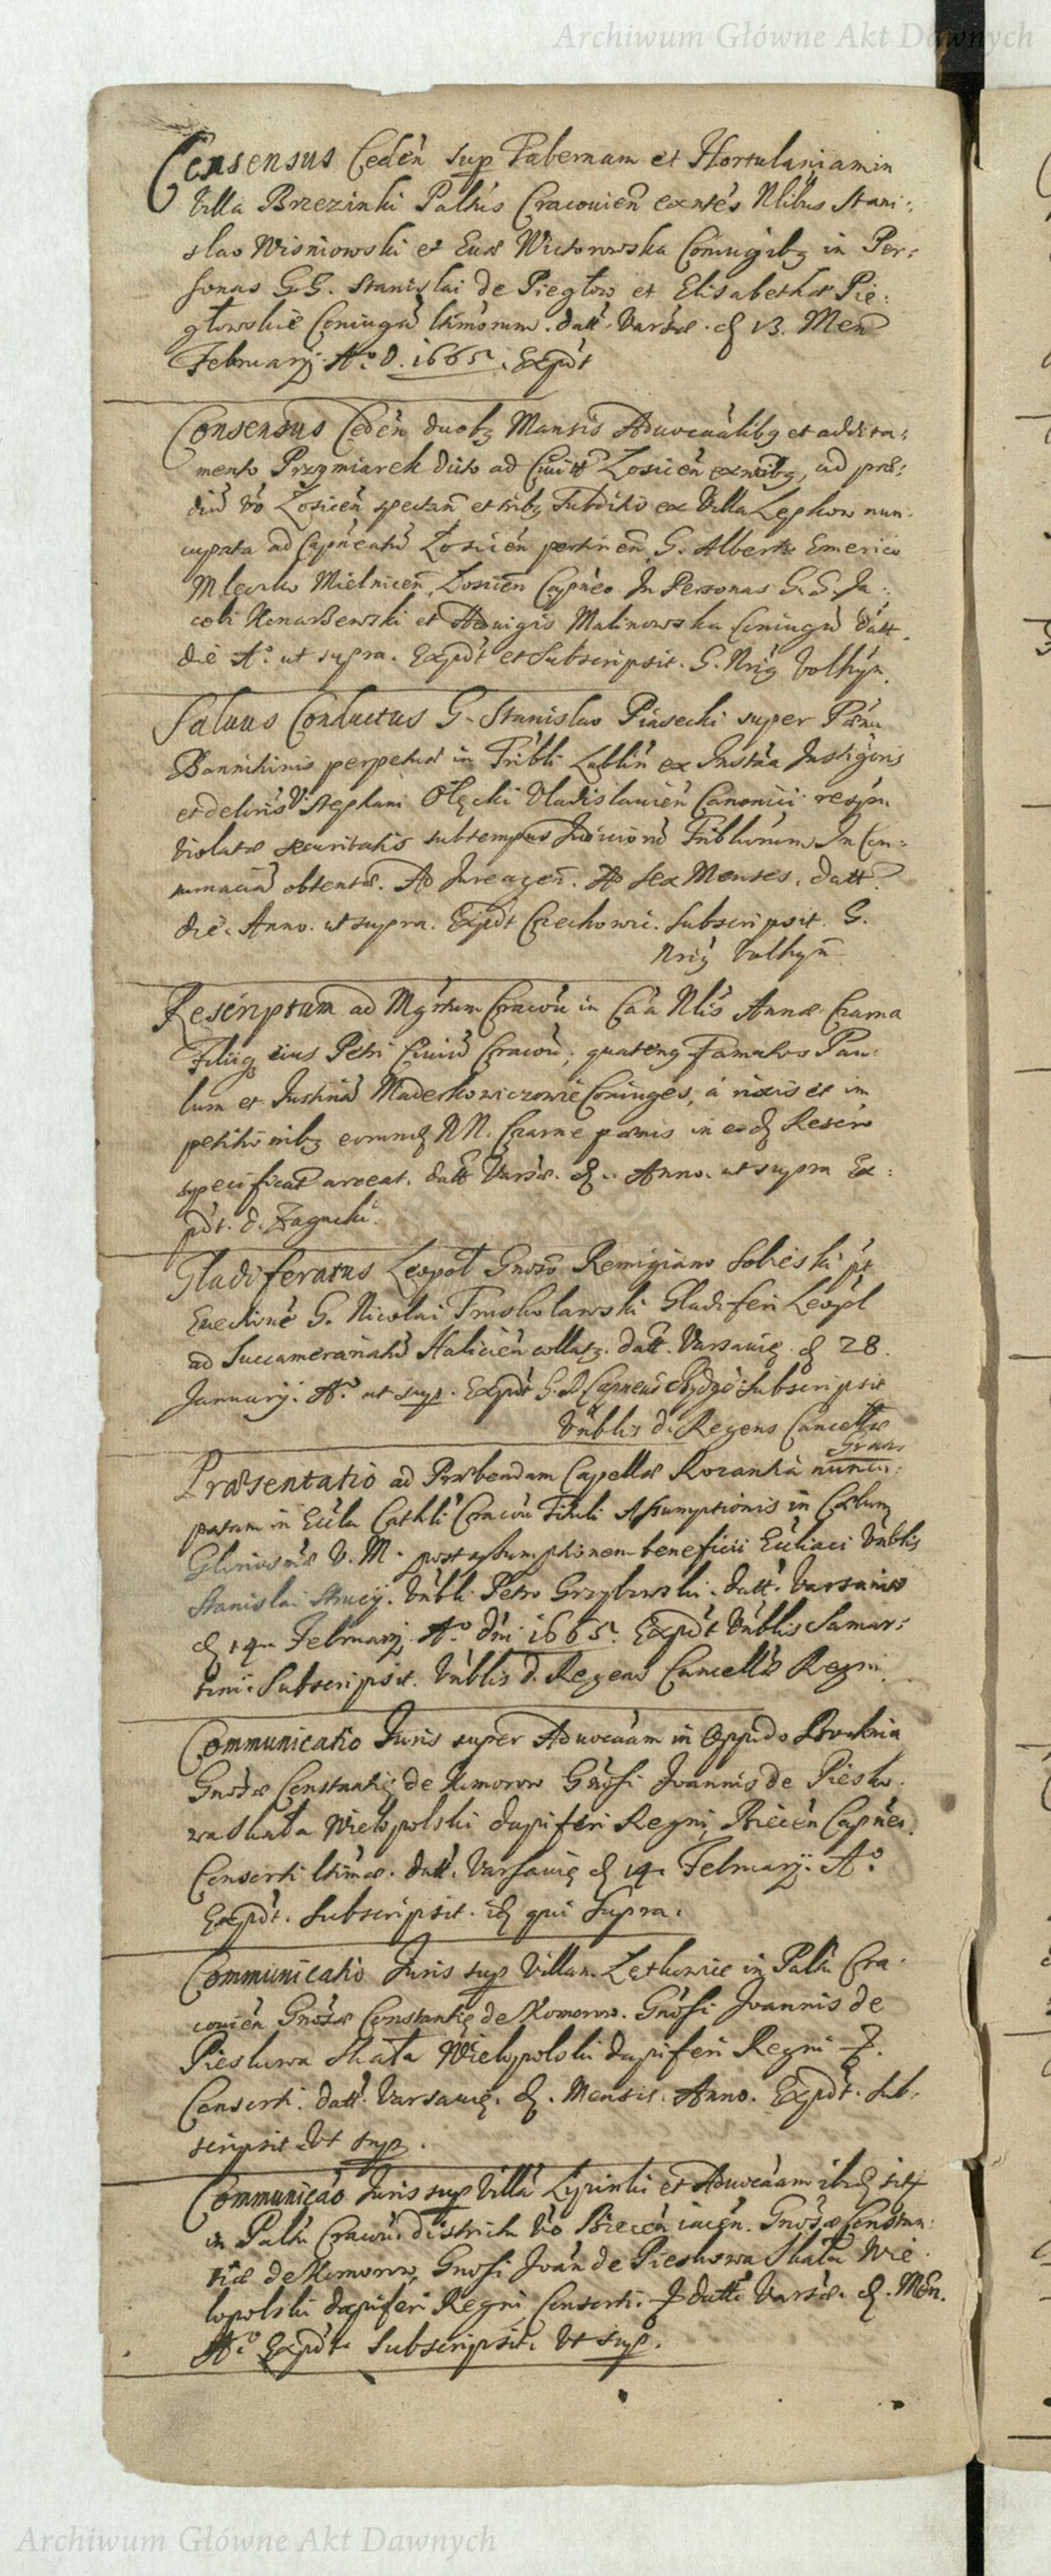 Archiwum Główne Akt Dawnych
Consensus Cedeń sup Tabernam et Hortulaniam in
Villa Brzezinki Paltûs Cracouień exntēs Nlibus Stani:
slao Wisniowski et Euæ Wictorowska Coniugibq in Per:
sonas G.G. Stanislai de Piegłow et Elisabethæ Pie:
głowskie Coniugū ltimorum. datt. Varsæ. d 13. Men
Februarij. Aº. D. 1665. Expdt
Consensus Cedeń duobq Mansis Aduocaālibq et addita:
mento Przymiarek dicto ad Ciuitt Łosiceń exntibq, ad præ:
diū vo Łosiceń spectań et tribq Subditis ex Villa Lepkow nun
cupata ad Capneatū Łosiceń pertineń G. Alberto Emerico
Mlecko Mielniceń, Łosiceń Capneo. In Personas G.G. Ja:
cobi Konarzewski et Heduigis Malinowska Coniugū datt.
die Aº. ut supra. Expdt et Subscripsit. G. Nrīq Volhyn.
Saluus Conductus G. Stanislao Piasecki super Pænu
Bannitionis perpetuæ in Tribli Lublin ex Instāa Instigōris
et delōris V. Stephani Olęcki Vladislauień Canonici respu
violatæ securitatis sub tempus Judiciorū Triblium In Con:
tumaciā obtentæ. Ad Jure ageń. Ad sex Menses. datt
die. Anno. ut supra. Expdt Czechowic. Subscripsit. G.
Nrīq Volhyn
Rescriptum ad Mgrtum Cracou in Cāa Nlis Annæ Czarna
Filiiq eius Petri Ciuiū Cracou, quatenq Famatos Pau:
lum et Justinā Maderkowiczowie Coniuges, a
petitionibq eorund NN. Czarne pænis in eod Rescro
specificat arceat. datt Varsæ. d. Anno. ut supra Ex:
pdt. d. Zagucki.
Gladiferatus Leopol Gnoso Remigiano Sobieski pt
Euectionē G. Nicolai Truskolawski Gladiferi Leopol
ad Succameratū Halicień collatq. datt. Varsauię d 28.
Januarij. Aº ut sup. Expdt G. Capneus Subscripsit
Vnblis d. Regens Cancellæ
Præsentatio ad Præbendam Capellæ Rorantiā nuncu:
patam in Eccla Cathli Cracou Tituli Assumptionis in Cælum
Gloriosæ V. M. post assumptionem beneficii Eccliaci Vnblis
Stanislai. Vnbli Petro Grzybowski. datt. Varsauiæ
d 14 Februarij. Aº. dni 1665. Expdt Vnblis Samar:
tini Subscripsit. Vnblis d. Regens Cancellæ Regni
Communicatio Juris super Aduocaām in Oppido
Gnosæ Constantię de Komorow Gnosi Joannis de Piesko:
wa Skała Wielopolski dapiferi Regni, Biecen Capnei.
Consorti ltimæ. datt. Varsauię d 14. Februarij. Aº
Expdt. Subscripsit. id qui Supra.
Communicatio Juris sup Villam Lętkowice in Paltu Cra:
couień Gnosæ Constantię de Komorow. Gnosi Joannis de
Pieskowa Skała Wielopolski dapiferi Regni
Consorti. datt. Varsauię. d. Mensis. Anno. Expdt. Sub:
scripsit Vt sup.
Communicao Juris sup Villā Lipinki et Aduocaam ibid sitæ
in Paltu Cracou. districtu vo Biecen iacēn. Gnosæ Constan:
tiæ de Komorow, Gnosi Joan de Pieskowa Skała Wie
lopolski dapiferi Regni Consorti. datt. Varsæ. d. Men.
Aº. Expdt. Subscripsit. Vt sup.
Archiwum Główne Akt Dawnych